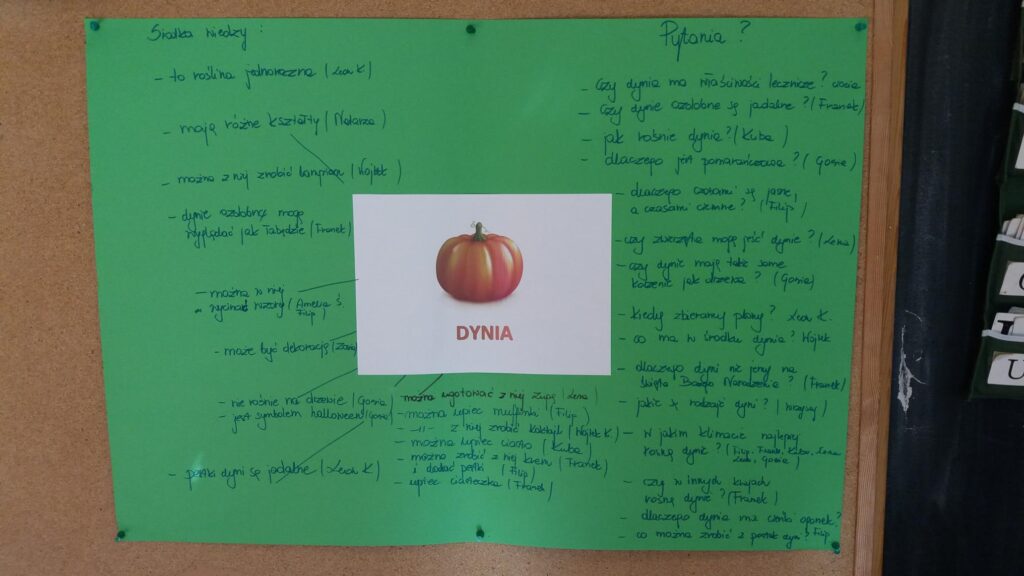 Siatka wiedzy :
- to roślina jednoroczna (Leon K)
- mają różne kształty (Natasza)
- można z niej zrobić lampion (Wojtek)
- dynie ozdobne mogą
wyglądać jak łabędzie (Franek)
- można w niej
wycinać wzory (Amelia Ś.
Filip)
- może być dekoracją
- nie rośnie na drzewie (Gosia)
- jest symbolem halloween (Gosia)
- pestki dyni są jadalne (Leon K)
DYNIA
można ugotować z niej zupę (Lena)
- można upiec muffinki (Filip)
- -11- z niej zrobić koktajl (Wojtek K.)
- można upiec ciasto (Kuba)
- można zrobić z niej krem (Franek)
i dodać pestki (Filip)
- upiec ciasteczka (Franek)
Pytania ?
- Czy dynia ma właściwości lecznicze? Gosia
- Czy dynie ozdobne są jadalne? (Franek)
- jak rośnie dynia? (Kuba)
- dlaczego jest pomarańczowa? (Gosia)
- dlaczego czasami są jasne,
a czasami ciemne? (Filip)
- czy zwierzęta mogą jeść dynie? (Lena)
- czy dynie mają takie same
korzenie jak drzewa? (Gosia)
- Kiedy zbieramy plony? Leon K.
- co ma w środku dynia? Wojtek
- dlaczego dyni nie jemy na
Święta Bożego Narodzenia? (Franek)
- jakie są rodzaje dyni? (wszyscy)
- w jakim klimacie najlepiej
rosną dynie? (Filip, Franek, Kuba, Lena
Leon, Gosia)
- czy w innych krajach
rosną dynie? (Franek)
- dlaczego dynia ma cienki ogonek?
- co można zrobić z pestek dyni? Filip
U